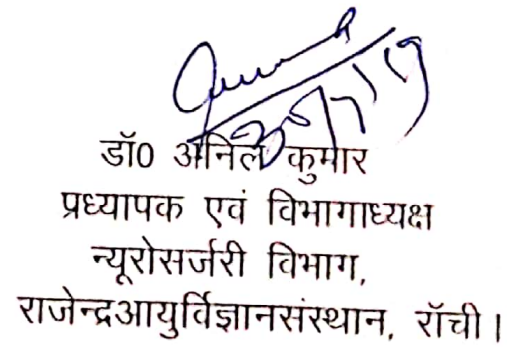 30/7/19
डॉ0 अनिल कुमार
प्रध्यापक एवं विभागाध्यक्ष
न्यूरोसर्जरी विभाग,
राजेन्द्रआयुर्विज्ञानसंस्थान, राँची।